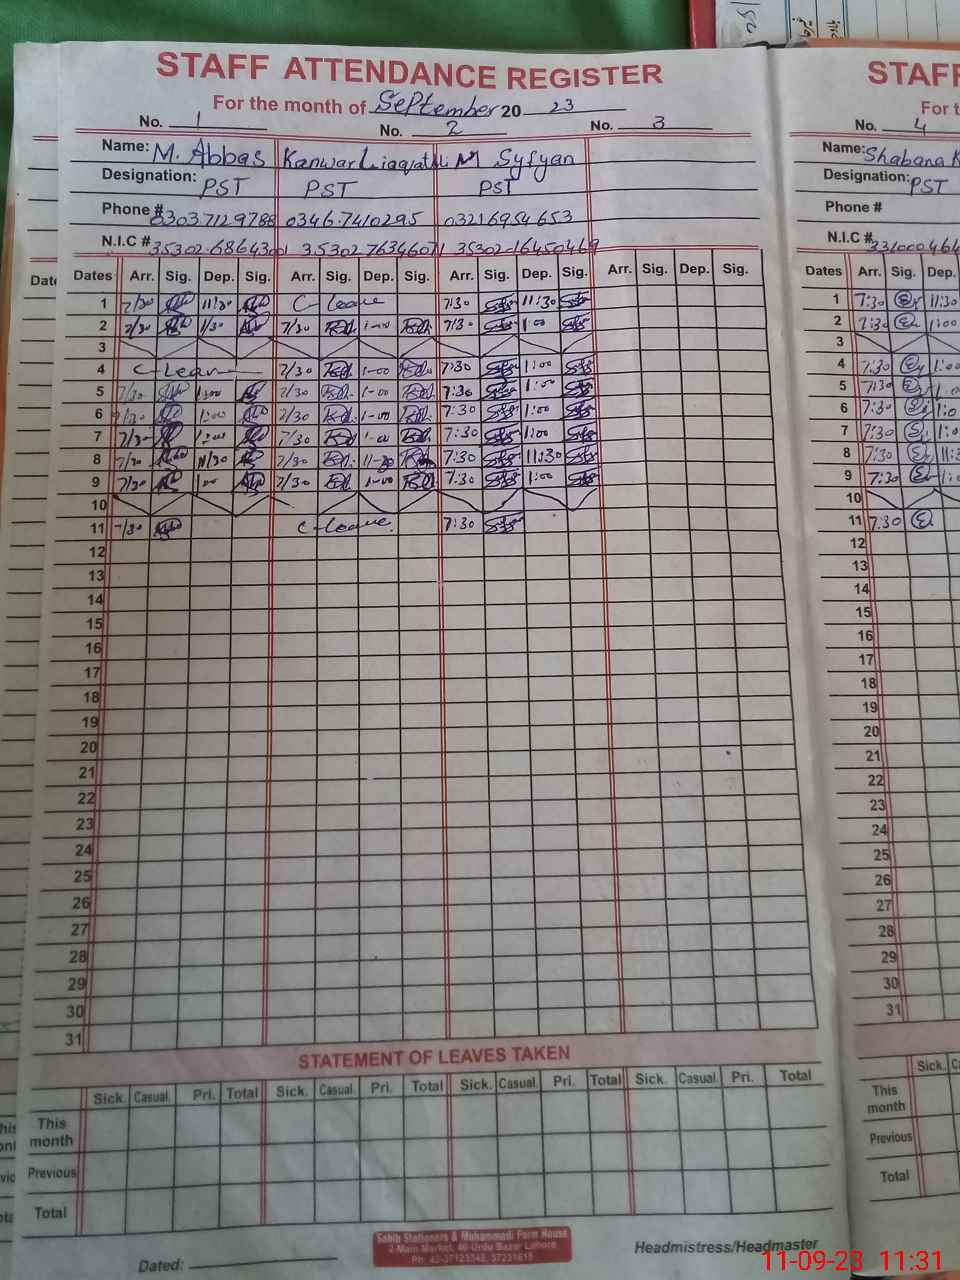 STAFF ATTENDANCE REGISTER
For the month of September 20 23
No. 1 No. 2 No. 3
Name: M. Abbas Kanwar Liaqat Ali M Syfyan
Designation: PST PST PST
Phone # 03037129788 03467410295 03216954653
N.I.C #
Dates Arr. Sig. Dep. Sig. Arr. Sig. Dep. Sig. Arr. Sig. Dep. Sig. Arr. Sig. Dep. Sig.
1 7/30 11/30 C-leave 7:30 11:30
2 7/30 1/30 7/30 1-00 7:30 1:00
3
4 C-Leave 7/30 1-00 7:30 1:00
5 7/30 1:00 7/30 1-00 7:30 1:00
6 7/30 1:00 7/30 1-00 7:30 1:00
7 7/30 1:00 7/30 1-00 7:30 1:00
8 7/30 11/30 7/30 11-30 7:30 11:30
9 7/30 1:00 7/30 1-00 7:30 1:00
10
11 7/30 C-leave. 7:30
12
13
14
15
16
17
18
19
20
21
22
23
24
25
26
27
28
29
30
31
STATEMENT OF LEAVES TAKEN
Sick. Casual. Pri. Total Sick. Casual. Pri. Total Sick. Casual. Pri. Total Sick. Casual. Pri. Total
This month
Previous
Total
Sahib Stationers & Muhammadi Form House
2-Main Market, 40-Urdu Bazar Lahore
Dated: Headmistress/Headmaster
STAFF
For t
No. 4
Name: Shabana K
Designation: PST
Phone #
N.I.C #
Dates Arr. Sig. Dep.
1 7:30 11:30
2 7:30 1:00
3
4 7:30
5 7:30
6 7:30
7 7:30
8 7:30
9 7:30
10
11 7:30
12
13
14
15
16
17
18
19
20
21
22
23
24
25
26
27
28
29
30
31
Sick. C
This month
Previous
Total
11-09-23 11:31